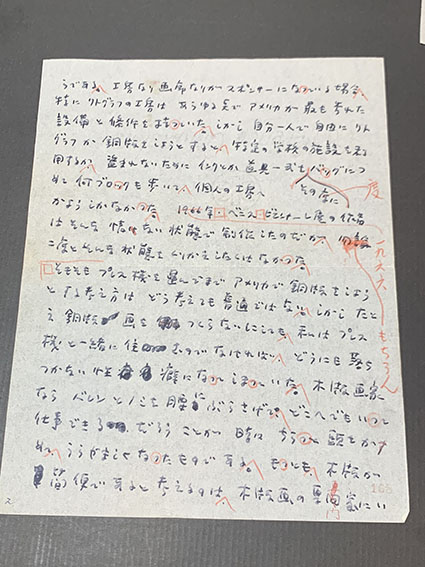 うである。工房なり画廊なりがスポンサーになっている場合、
特にリトグラフの工房は あらゆる点で アメリカが 最も秀れた
設備と條件を持っていた。しかし 自分一人で自由にリト
グラフか 銅版をしようとすると、特定の学校の施設を利
用するか、盗まれないためにインクから道具一式をバッグにつ
めて何ブロックも歩いて、個人の工房へ
その度に
度
かようしかなかった。1966年、ベニス・ビエンナーレ展の作品
はそんな情ない状態で制作したのだが、勿論
一九六六
もちろん
二度とそんな状態をくりかえしたくはなかった。
そもそもプレス機を運んでまでアメリカで銅版をしよう
とする考え方は どう考えても普通ではない。しかしたと
え銅版画をつくらないにしても、私はプレス
機と一緒に住むのでなければ、どうにも落ち
つかない性癖になってしまっていた。木版画家
なら バレンとノミを腰にぶらさげて、どこへでもいって
仕事できるだろうことが 時に ちらっと頭をかす
め、うらやましくなったものである。もっとも、木版が
簡便であると考えるのは、木版画の専門家にい